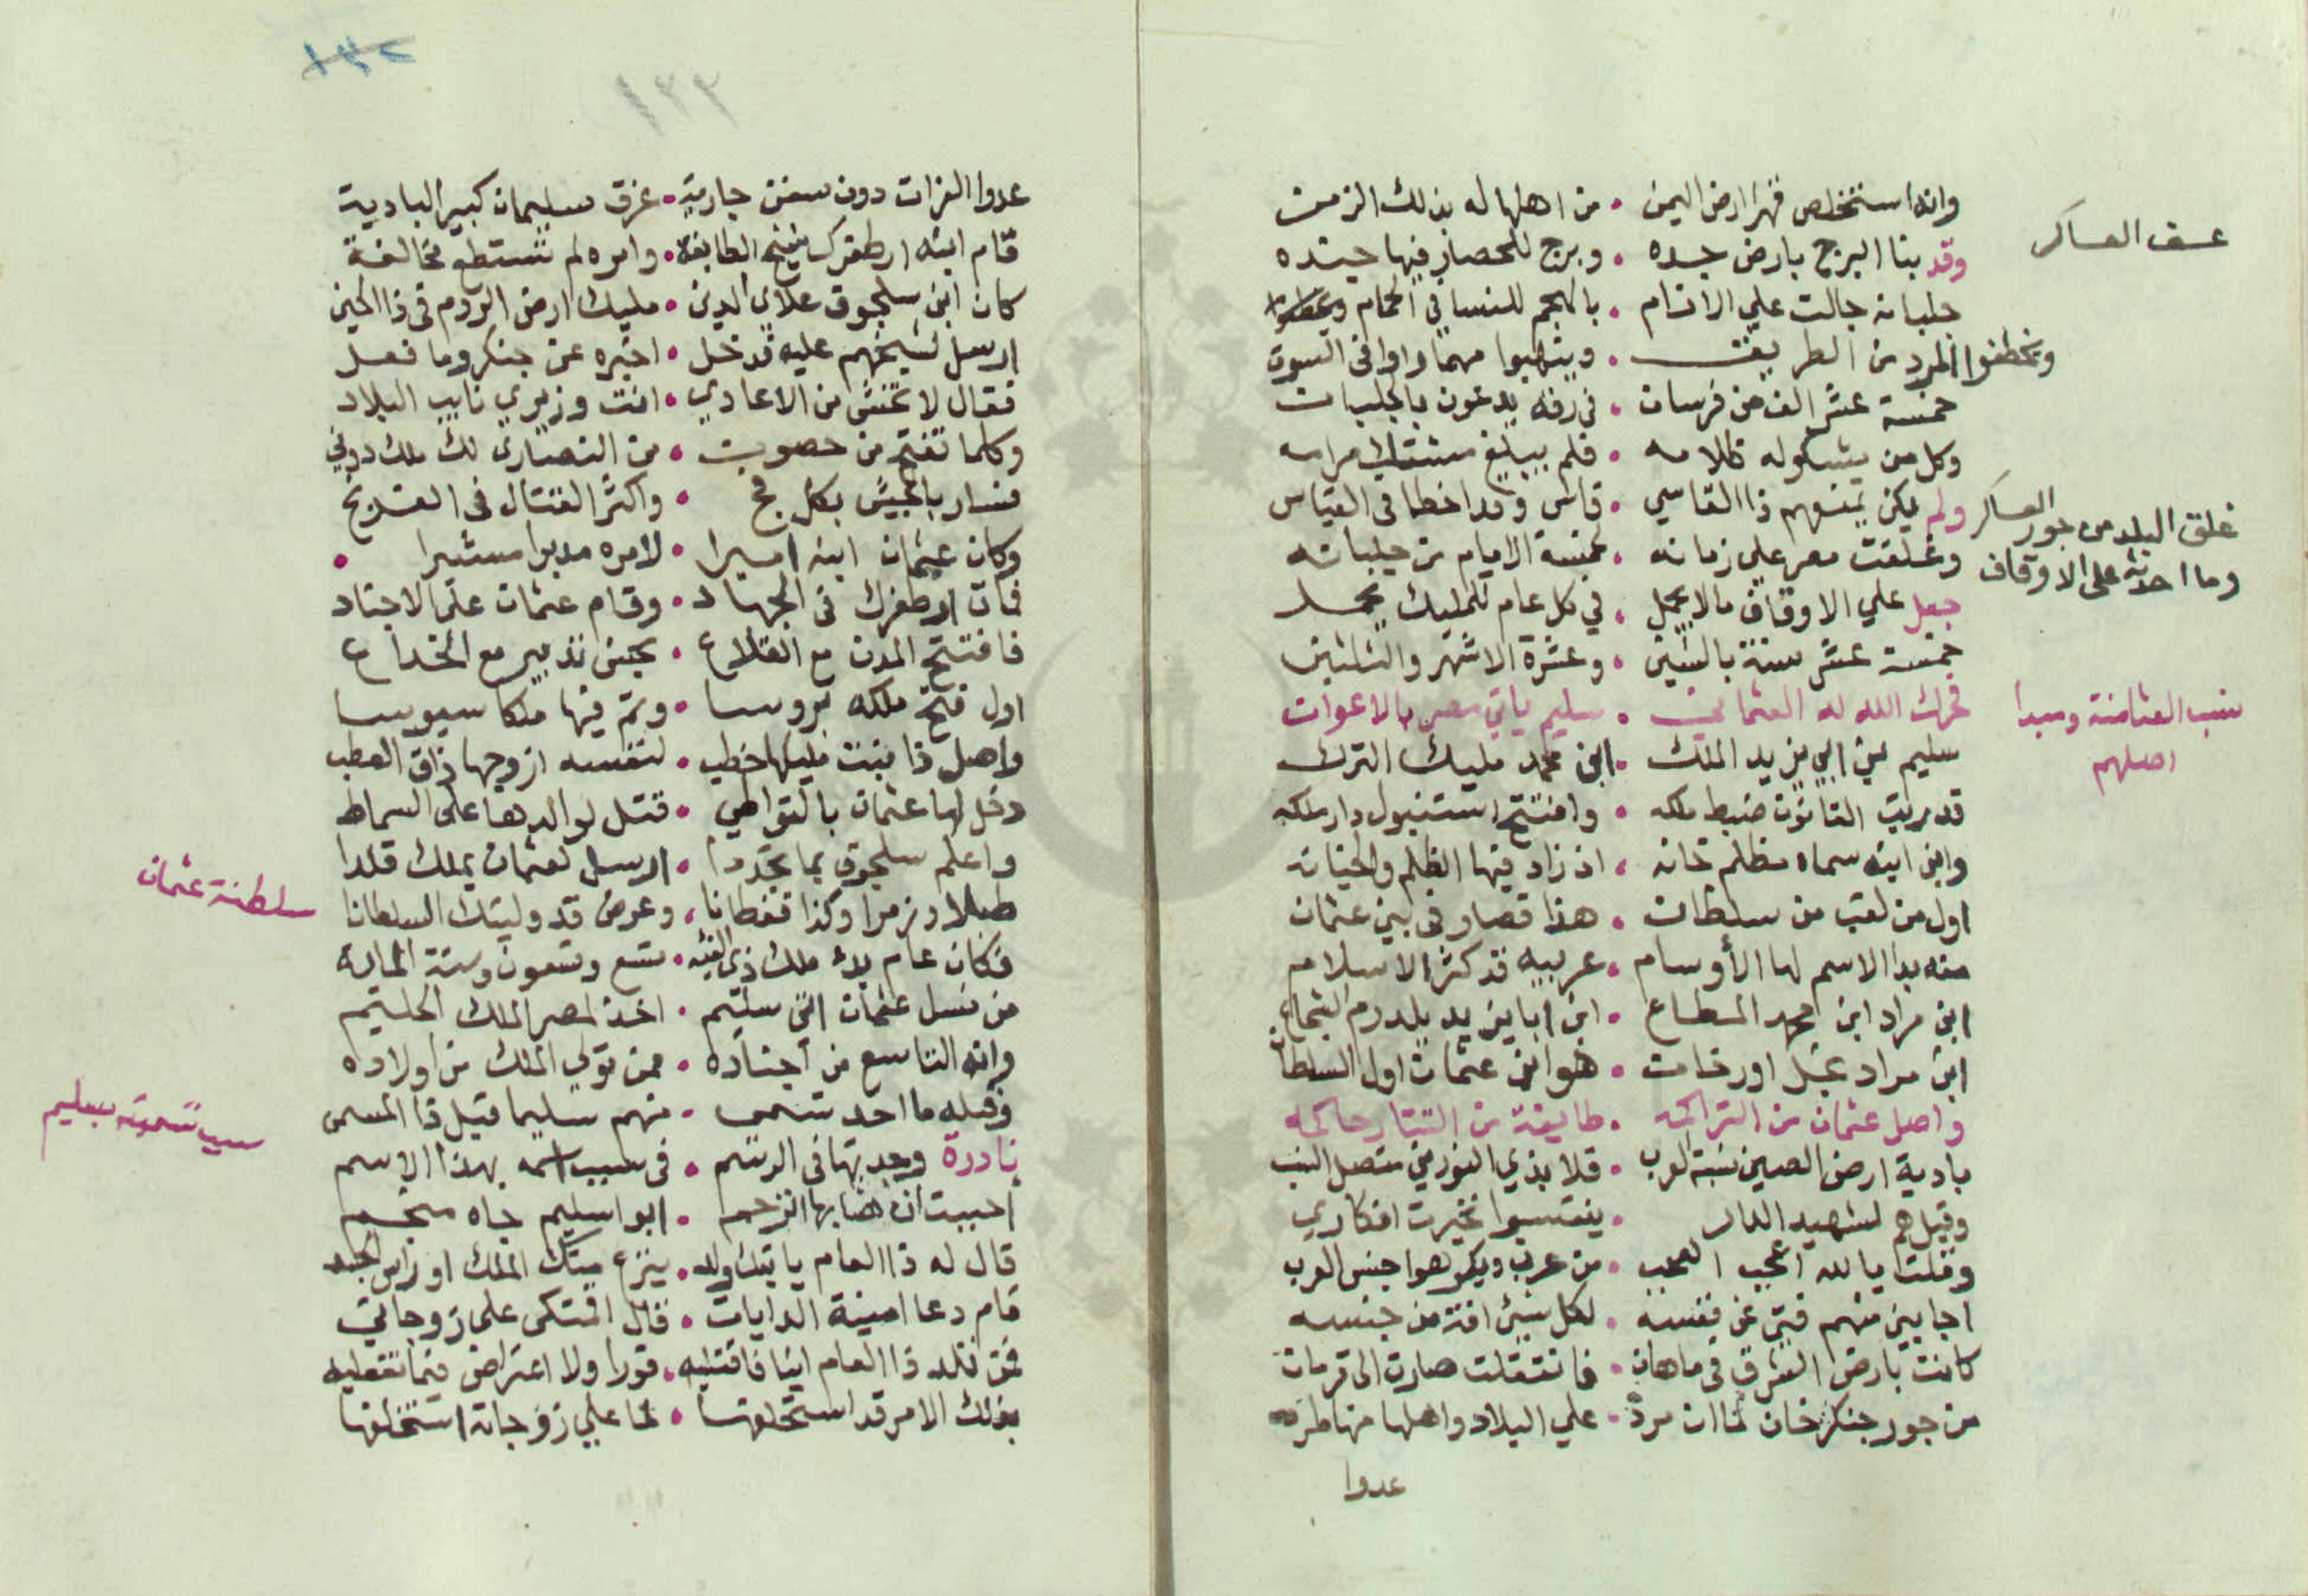 وانه استخلص قهرا ارض اليمن • من اهلها له بذلك الزمن
عسف العساكر
وقد بنا البرج بارض جده • وبرج للحصار فيها حيده
جلبانه جالت علي الانام • بالهجم للنسا في الحمام
ويخطفوا المرد من الطريق • وينهبوا مهما راوا في السوق
خمسة عشر الف من فرسان • في زفه يدعون بالجلبان
وكل من يشكو له كلامه • فلم يبلغ مشتك مرامه
ولم يكن يمنعهم ذا القاسي • قاس وقد اخطا في القياس
غلق البلد من جور العساكر
وما احدثه على الاوقاف
وغلقت مصر علي زمانه • لخمسة الايام من جلبانه
جعل علي الاوقاف مالا يحمل • في كل عام للمليك يحمل
خمسة عشر سنة بالسنين • وعشرة الاشهر والثلثين
فحرك الله له العثماني • سليم ياتي مصر بالاعوان
نسب العثامنة ومبدا
اصلهم
سليم ابن ابي يزيد الملك • ابن محمد مليك الترك
قد رتب القانون ضبط ملكه • وافتتح استنبول دار ملكه
وابن ابنه سماه مظلم خانه • اذ زاد فيها الظلم والخيانه
اول من لقب من سلطان • هذا فصار في بني عثمان
منه بدا الاسم لها الأوسام • عربيه قد كثر الاسلام
ابن مراد ابن محمد المطاع • ابن ابا يزيد يلدرم الشجاع
ابن مراد نجل اورخان • هو ابن عثمان اول السلطان
واصل عثمان من التراكمه • طايفة من التتار حاكمه
بادية ارض الصين نسبة لعرب • قلا بذي النورين متصل النسب
وقيل هم لشهيد الدار • ينتسبوا تحيرت افكاري
وقلت يالله اعجب العجب • من عرب ويكرهوا جنس العرب
اجابني منهم فتى عن نفسه • لكل شيئ افة من جنسه
كانت بارض الشرق في ماهان • فانتقلت صارت الى قرمان
من جور جنكز خان لما ان مرد • علي البلاد واهلها منها طرد
عدوا
عدوا الفرات دون سفن جارية • غرق سليمان كبير البادية
قام ابنه ارطغرك شيخ الطايفة • وامره لم تستطع مخالفة
كان ابن سلجوق علاي الدين • مليك ارض الروم في ذا الحين
ارسل لشيخهم عليه قد دخل • اخبره عن جنكز وما فعل
فقال لا تخش من الاعادي • انت وزيري نايب البلاد
وكلما تفتح من حصون • من النصارى لك ملك دوني
فسار بالجيش بكل فج • واكثر القتال في الفرنج
وكان عثمان ابنه اميرا • لامره مدبرا مشيرا •
فمات ارطغرك في الجهاد • وقام عثمان علي الاجناد
فافتتح المدن مع القلاع • بحسن تدبير مع الخداع
اول فتح ملكه بروسا • وتم فيها ملكا سيوسا
واصل ذا بنت مليكها خطب • لنفسه ازوجها ذاق العطب
دخل لها عثمان بالتواطي • قتل لوالدها على السماط
واعلم سلجوق بما تجددا • ارسل لعثمان بملك قلدا
سلطنة عثمان
طبلا وزمرا وكذا قفطانا • وعرض قد وليتك السلطانا
فكان عام بدء ملك ذي الفئه • تسع وتسعون وستة المائة
من نسل عثمان اتى سليم • اخذ لمصر الملك الحليم
وانه التاسع من اجناده • ممن تولي الملك من اولاده
وقبله ما احد تسمى • منهم سليما قبل ذا المسمى
سبب تسميته بسليم
نادرة وجدتها في الرسم • في سبب اسمه بهذا الاسم
احببت ان بها انرحم • ابو سليم جاه منجم
قال له ذا العام ياتيك ولد • ينزع منك الملك او راس الجسد
قام دعا امينة الدايات • قال امتكى على زوجاتي
فمن تلد ذا العام ابنا فاقتليه • فورا ولا اعتراض فيما تفعليه
بذلك الامر قد استحلفها • لما علي زوجاته استخلفها